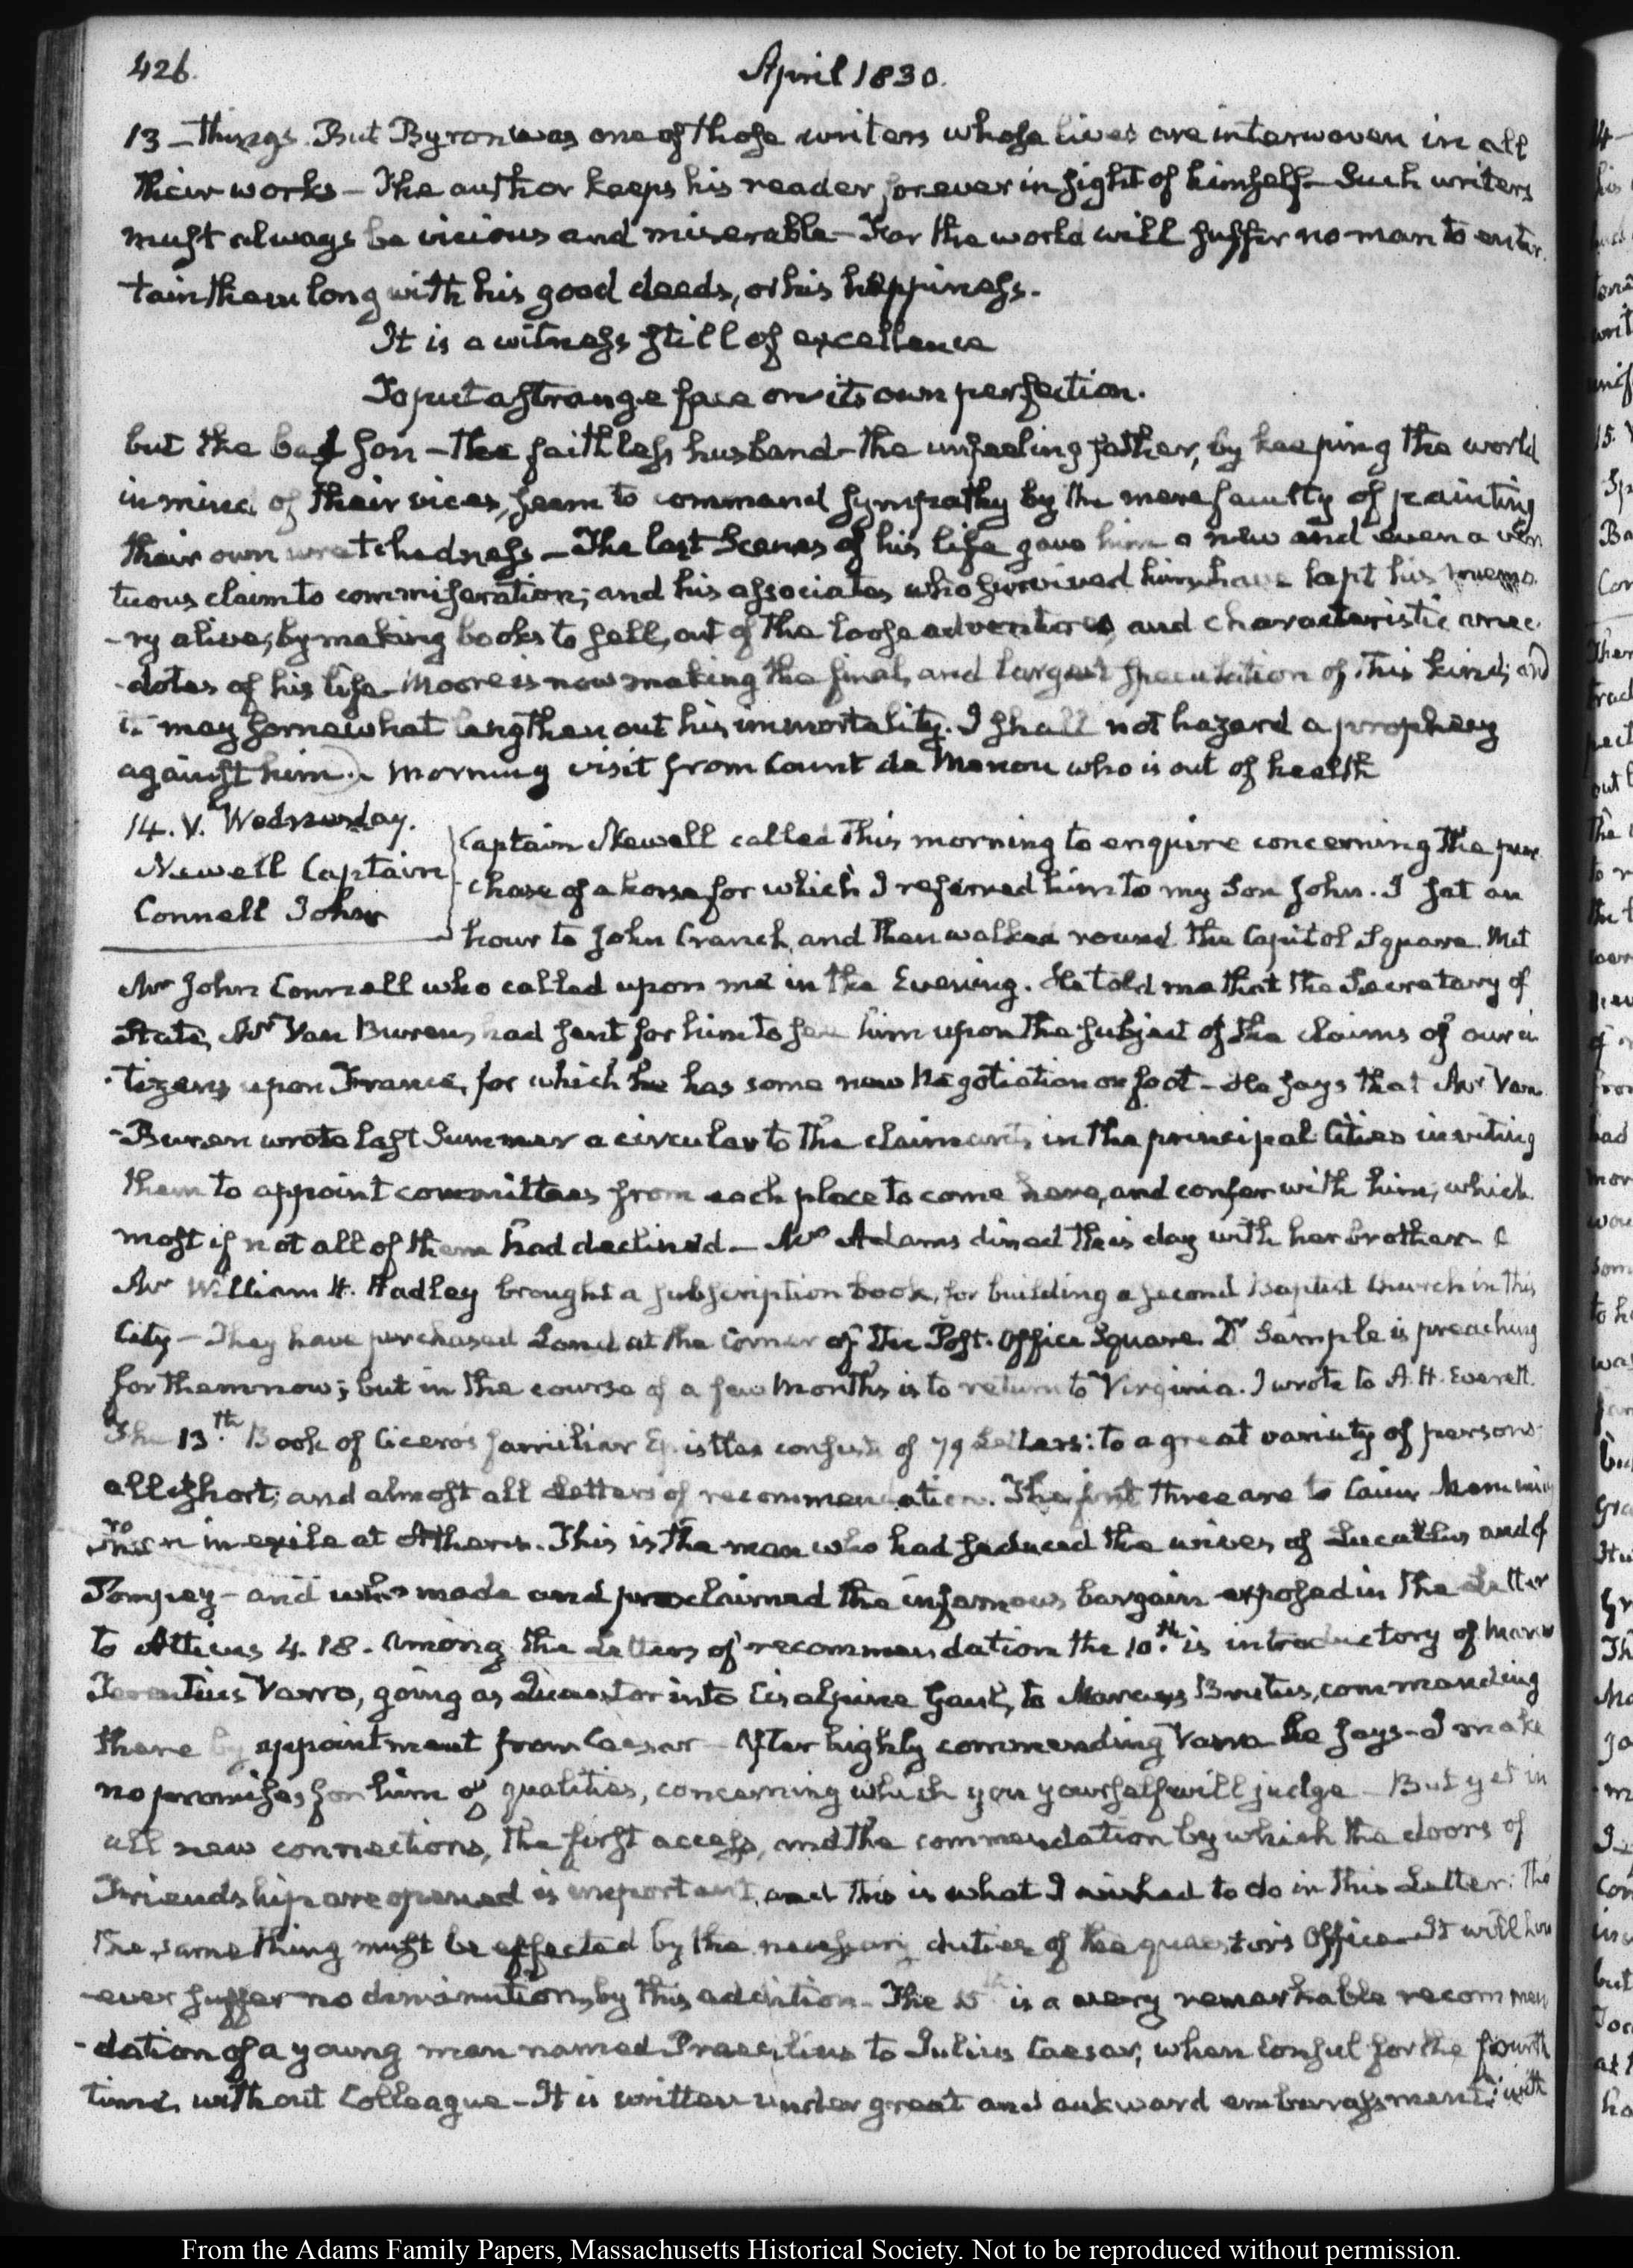 426.
April 1830.
13 – things. But Byron was one of those writers whose lives are interwoven in all
their works – The author keeps his reader forever in sight of himself – Such writers
must always be vicious and miserable – For the world will suffer no man to enter-
tain them long with his good deeds, or his happiness.
It is a witness still of excellence
To put a strange face on its own perfection.
but the bad Son – the faithless husband – the unfeeling father, by keeping the world
in mind of their vices, seem to command sympathy by the mere faculty of painting
their own wretchedness – The last Scenes of his life gave him a new and even a vir-
tuous claim to commiseration; and his associates who survived him have kept his memo-
-ry alive, by making books to sell, out of the loose adventures and characteristic anec-
-dotes of his life – Moore is now making the final, and largest speculation of this kind; and
it may somewhat lengthen out his immortality. I shall not hazard a prophecy
against him. Morning visit from Count de Menou who is out of health
14. V. Wednesday.
Newell Captain
Connell John
Captain Newell called this morning to enquire concerning the pur-
-chase of a horse for which I referred him to my Son John. I sat an
hour to John Cranch, and then walked round the Capitol Square. Met
Mr John Connell who called upon me in the Evening. He told me that the Secretary of
State, Mr Van Buren, had sent for him to see him upon the subject of the claims of our ci-
-tizens upon France, for which he has some new Negotiation on foot – He says that Mr Van
-Buren wrote last Summer a circular to the claimants in the principal Cities inviting
them to appoint committees from each place to come here, and confer with him; which
most if not all of them had declined – Mrs Adams dined this day with her brother –
Mr William H. Hadley brought a subscription book, for building a second Baptist Church in this
City – They have purchased Land at the Corner of the Post-Office Square. Dr Semple is preaching
for them now; but in the course of a few Months is to return to Virginia. I wrote to A. H. Everett.
The 13.th Book of Cicero's familiar Epistles consists of 79 Letters: to a great variety of persons
all short; and almost all Letters of recommendation. The first three are to Caius Memmius
then in exile at Athens. This is the man who had seduced the wives of Lucullus and of
Pompey – and who made and proclaimed the infamous bargain exposed in the Letter
to Atticus 4. 18. Among the Letters of recommendation the 10.th is introductory of Marcus
Terentius Varro, going as Quaestor into Cisalpine Gaul, to Marcus Brutus, commanding
there by appointment from Caesar – After highly commending Varro he says – I make
no promises for him of qualities, concerning which you yourself will judge – But yet in
all new connections, the first access, and the commendation by which the doors of
Friendship are opened is important, and this is what I wished to do in this Letter: tho'
the same thing must be effected by the necessary duties of the quaestor's Office – It will how-
-ever suffer no diminution, by this addition – The 15th is a very remarkable recommen-
-dation of a young man named Precilius to Julius Caesar, when Consul for the fourth
time, without Colleague – It is written under great and awkward embarrassment: with
From the Adams Family Papers, Massachusetts Historical Society. Not to be reproduced without permission.